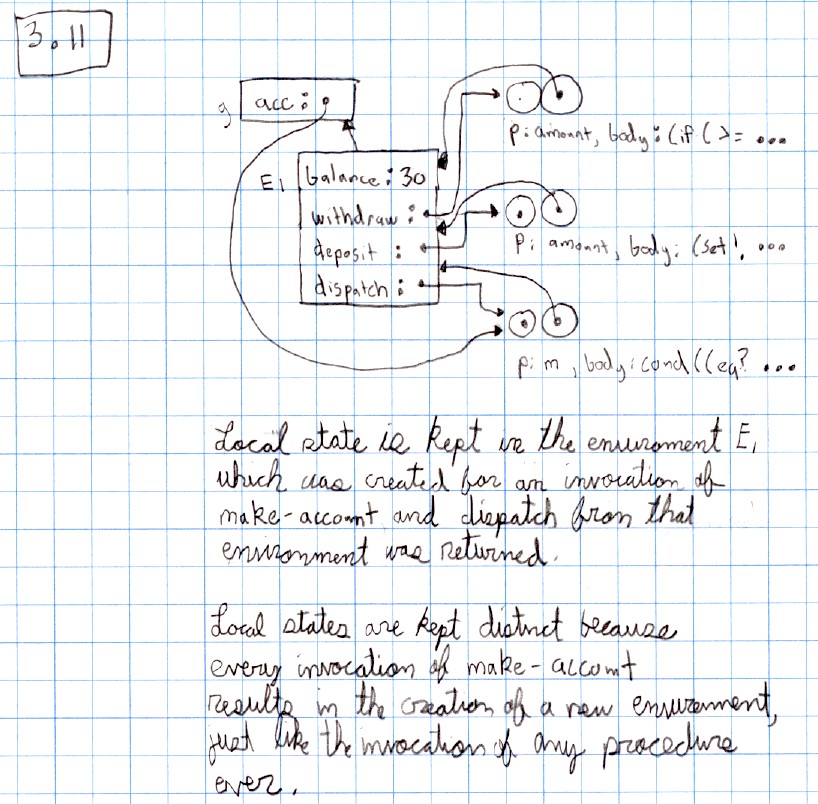 3.11
g acc:
p: amount, body: (if (>= ...
E1 balance: 30
withdraw:
deposit :
p: amount, body: (set! ...
dispatch:
p: m, body: cond ((eq? ...
Local state is kept in the enviroment E1
which was created for an invocation of
make-account and dispatch from that
environment was returned.
Local states are kept distinct because
every invocation of make-account
results in the creation of a new enviroment,
just like the invocation of any procedure
ever.